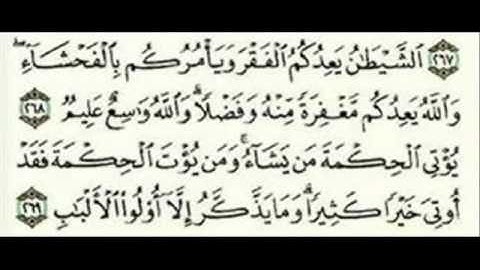 ٢٦٧ الشَّيْطَٰنُ يَعِدُكُمُ الْفَقْرَ وَيَأْمُرُكُم بِالْفَحْشَآءِ ۖ
وَاللَّهُ يَعِدُكُم مَّغْفِرَةً مِّنْهُ وَفَضْلًا ۗ وَاللَّهُ وَٰسِعٌ عَلِيمٌ ٢٦٨
يُؤْتِى الْحِكْمَةَ مَن يَشَآءُ ۚ وَمَن يُؤْتَ الْحِكْمَةَ فَقَدْ
أُوتِىَ خَيْرًا كَثِيرًا ۗ وَمَا يَذَّكَّرُ إِلَّآ أُو۟لُوا۟ الْأَلْبَٰبِ ٢٦٩